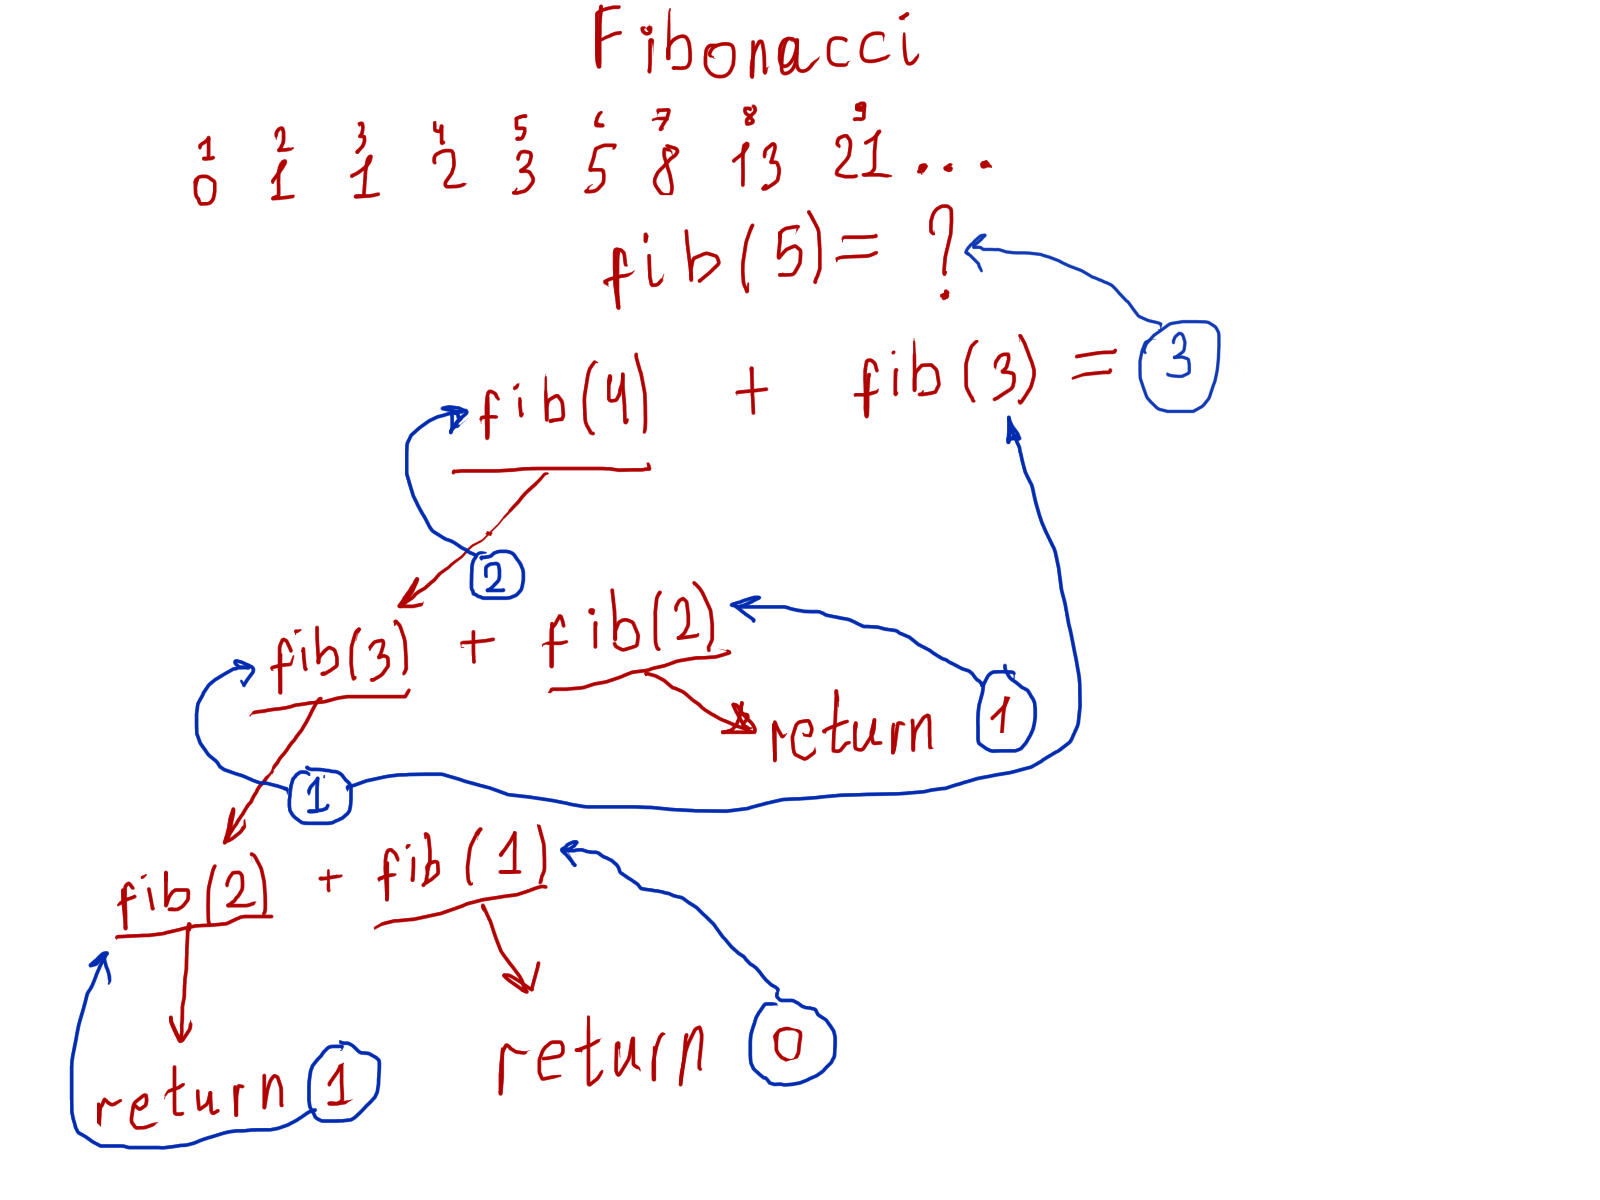 Fibonacci
1 2 3 4 5 6 7 8 9
0 1 1 2 3 5 8 13 21 ...
fib(5) = ?
fib(4) + fib(3) = 3
2
fib(3) + fib(2)
return 1
1
fib(2) + fib(1)
return 0
return 1